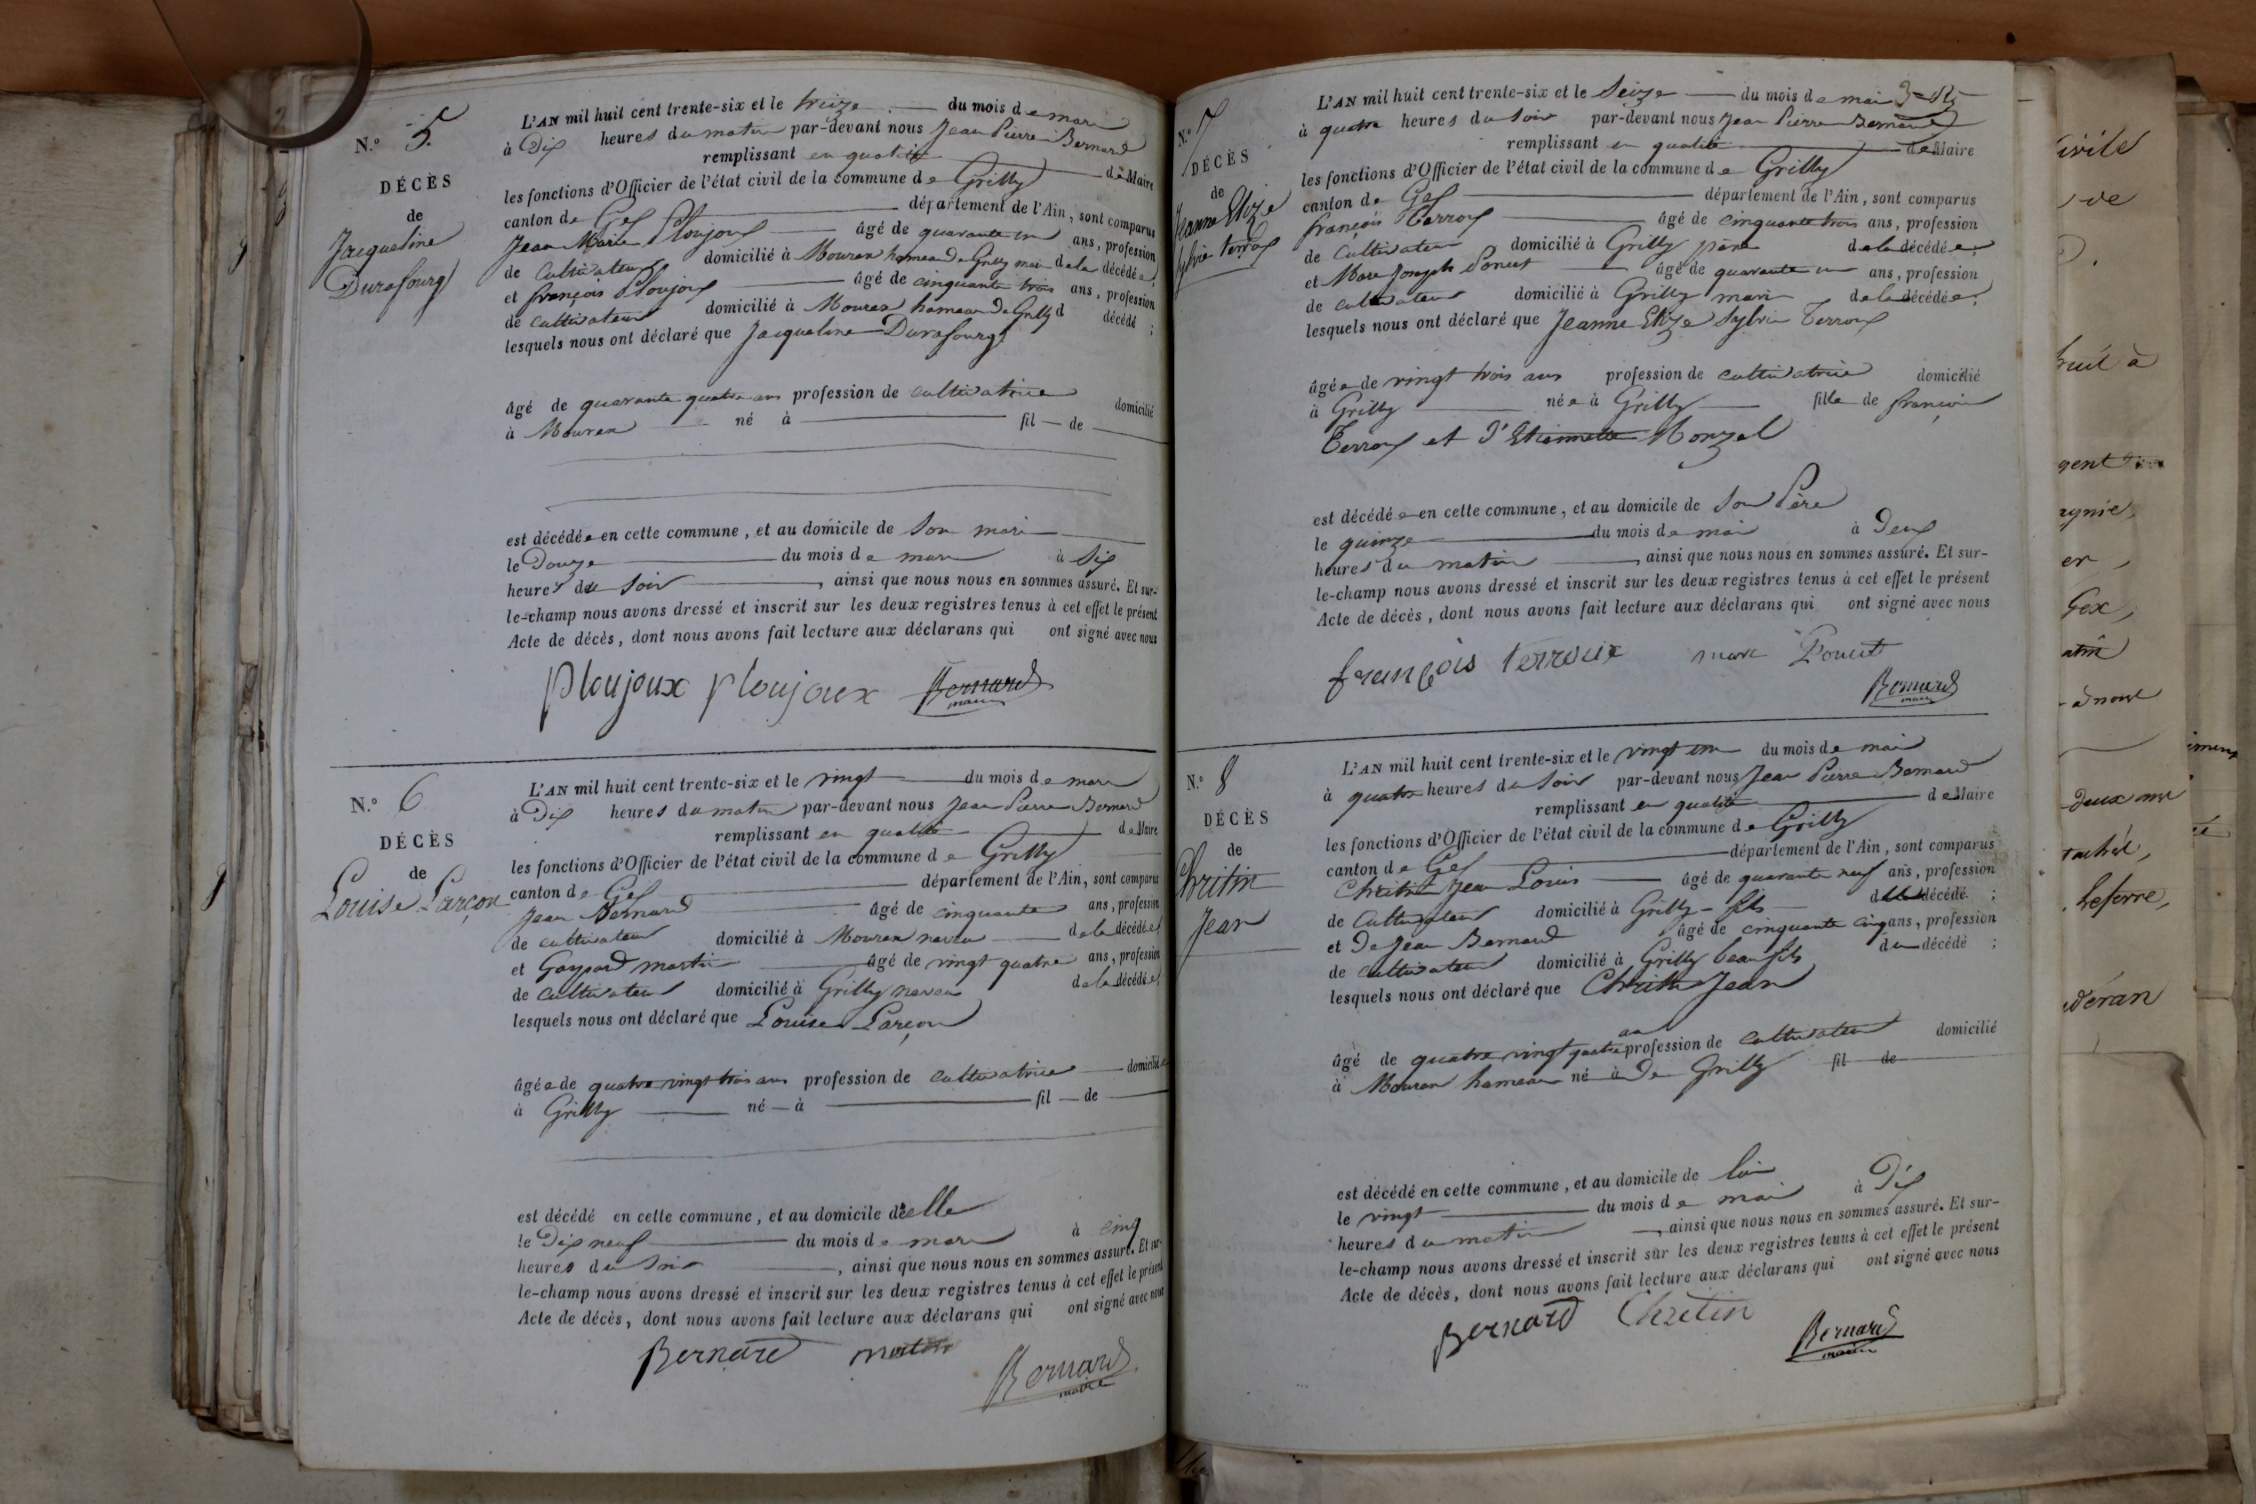 N.° 5.
DÉCÈS
de
Jacqueline
Durafourg
L'AN mil huit cent trente-six et le treize du mois de mars
à Dix heures du matin par-devant nous Jean Pierre Bernard
remplissant en qualité de Maire
les fonctions d'Officier de l'état civil de la commune de Grilly
canton de Gex département de l'Ain, sont comparus
Jean Marie Ploujoux âgé de quarante un ans, profession
de Cultivateur domicilié à Mouren hameau de Grilly mari de la décédée;
et françois Ploujoux âgé de cinquante trois ans, profession
de cultivateur domicilié à Mouren hameau de Grilly d décédé;
lesquels nous ont déclaré que Jacqueline Durafourg
âgé de quarante quatre ans profession de cultivatrice domicilié
à Mouren né à fil de
est décédée en cette commune, et au domicile de son mari
le Douze du mois de mars à Six
heures du soir, ainsi que nous nous en sommes assuré. Et sur-
le-champ nous avons dressé et inscrit sur les deux registres tenus à cet effet le présent
Acte de décès, dont nous avons fait lecture aux déclarans qui ont signé avec nous
Ploujoux Ploujoux Bernard
maire
N.° 6
DÉCÈS
de
Louise Larçon
L'AN mil huit cent trente-six et le vingt du mois de mars
à Dix heures du matin par-devant nous Jean Pierre Bernard
remplissant en qualité de Maire
les fonctions d'Officier de l'état civil de la commune de Grilly
canton de Gex département de l'Ain, sont comparus
Jean Bernard âgé de cinquante ans, profession
de cultivateur domicilié à Mouren neveu de la décédée;
et Gaspard martin âgé de vingt quatre ans, profession
de cultivateur domicilié à Grilly neveu de la décédée;
lesquels nous ont déclaré que Louise Larçon
âgée de quatre vingt trois ans profession de cultivatrice domiciliée
à Grilly né à fil de
est décédé en cette commune, et au domicile d'elle
le Dix neuf du mois de mars à cinq
heures du soir, ainsi que nous nous en sommes assuré. Et sur-
le-champ nous avons dressé et inscrit sur les deux registres tenus à cet effet le présent
Acte de décès, dont nous avons fait lecture aux déclarans qui ont signé avec nous
Bernard martin Bernard
maire
N.° 7
DÉCÈS
de
Jeanne Elize
Sylvie terroux
L'AN mil huit cent trente-six et le Seize du mois de mai
à quatre heures du soir par-devant nous Jean Pierre Bernard
remplissant en qualité de Maire
les fonctions d'Officier de l'état civil de la commune de Grilly
canton de Gex département de l'Ain, sont comparus
françois Terroux âgé de cinquante trois ans, profession
de Cultivateur domicilié à Grilly père de la décédée;
et Marc Joseph Poncet âgé de quarante un ans, profession
de cultivateur domicilié à Grilly mari de la décédée;
lesquels nous ont déclaré que Jeanne Elize Sylvie Terroux
âgée de vingt trois ans profession de cultivatrice domicilié
à Grilly née à Grilly fille de françois
Terroux et d'Etiennette Monzel
est décédée en cette commune, et au domicile de son Père
le quinze du mois de mai à Deux
heures du matin, ainsi que nous nous en sommes assuré. Et sur-
le-champ nous avons dressé et inscrit sur les deux registres tenus à cet effet le présent
Acte de décès, dont nous avons fait lecture aux déclarans qui ont signé avec nous
françois terroux marc Poncet
Bernard
maire
N.° 8
DÉCÈS
de
Chritin
Jean
L'AN mil huit cent trente-six et le vingt un du mois de mai
à quatre heures du soir par-devant nous Jean Pierre Bernard
remplissant en qualité de Maire
les fonctions d'Officier de l'état civil de la commune de Grilly
canton de Gex département de l'Ain, sont comparus
Chritin Jean Louis âgé de quarante neuf ans, profession
de Cultivateur domicilié à Grilly fils décédé;
et De Jean Bernard âgé de cinquante cinq ans, profession
de cultivateur domicilié à Grilly beau fils du décédé;
lesquels nous ont déclaré que Chritin Jean
âgé de quatre vingt quatre ans profession de cultivateur domicilié
à Mouren hameau né à De Grilly fil de
est décédé en cette commune, et au domicile de lui
le vingt du mois de mai à Dix
heures du matin, ainsi que nous nous en sommes assuré. Et sur-
le-champ nous avons dressé et inscrit sur les deux registres tenus à cet effet le présent
Acte de décès, dont nous avons fait lecture aux déclarans qui ont signé avec nous
Bernard Chretin Bernard
maire